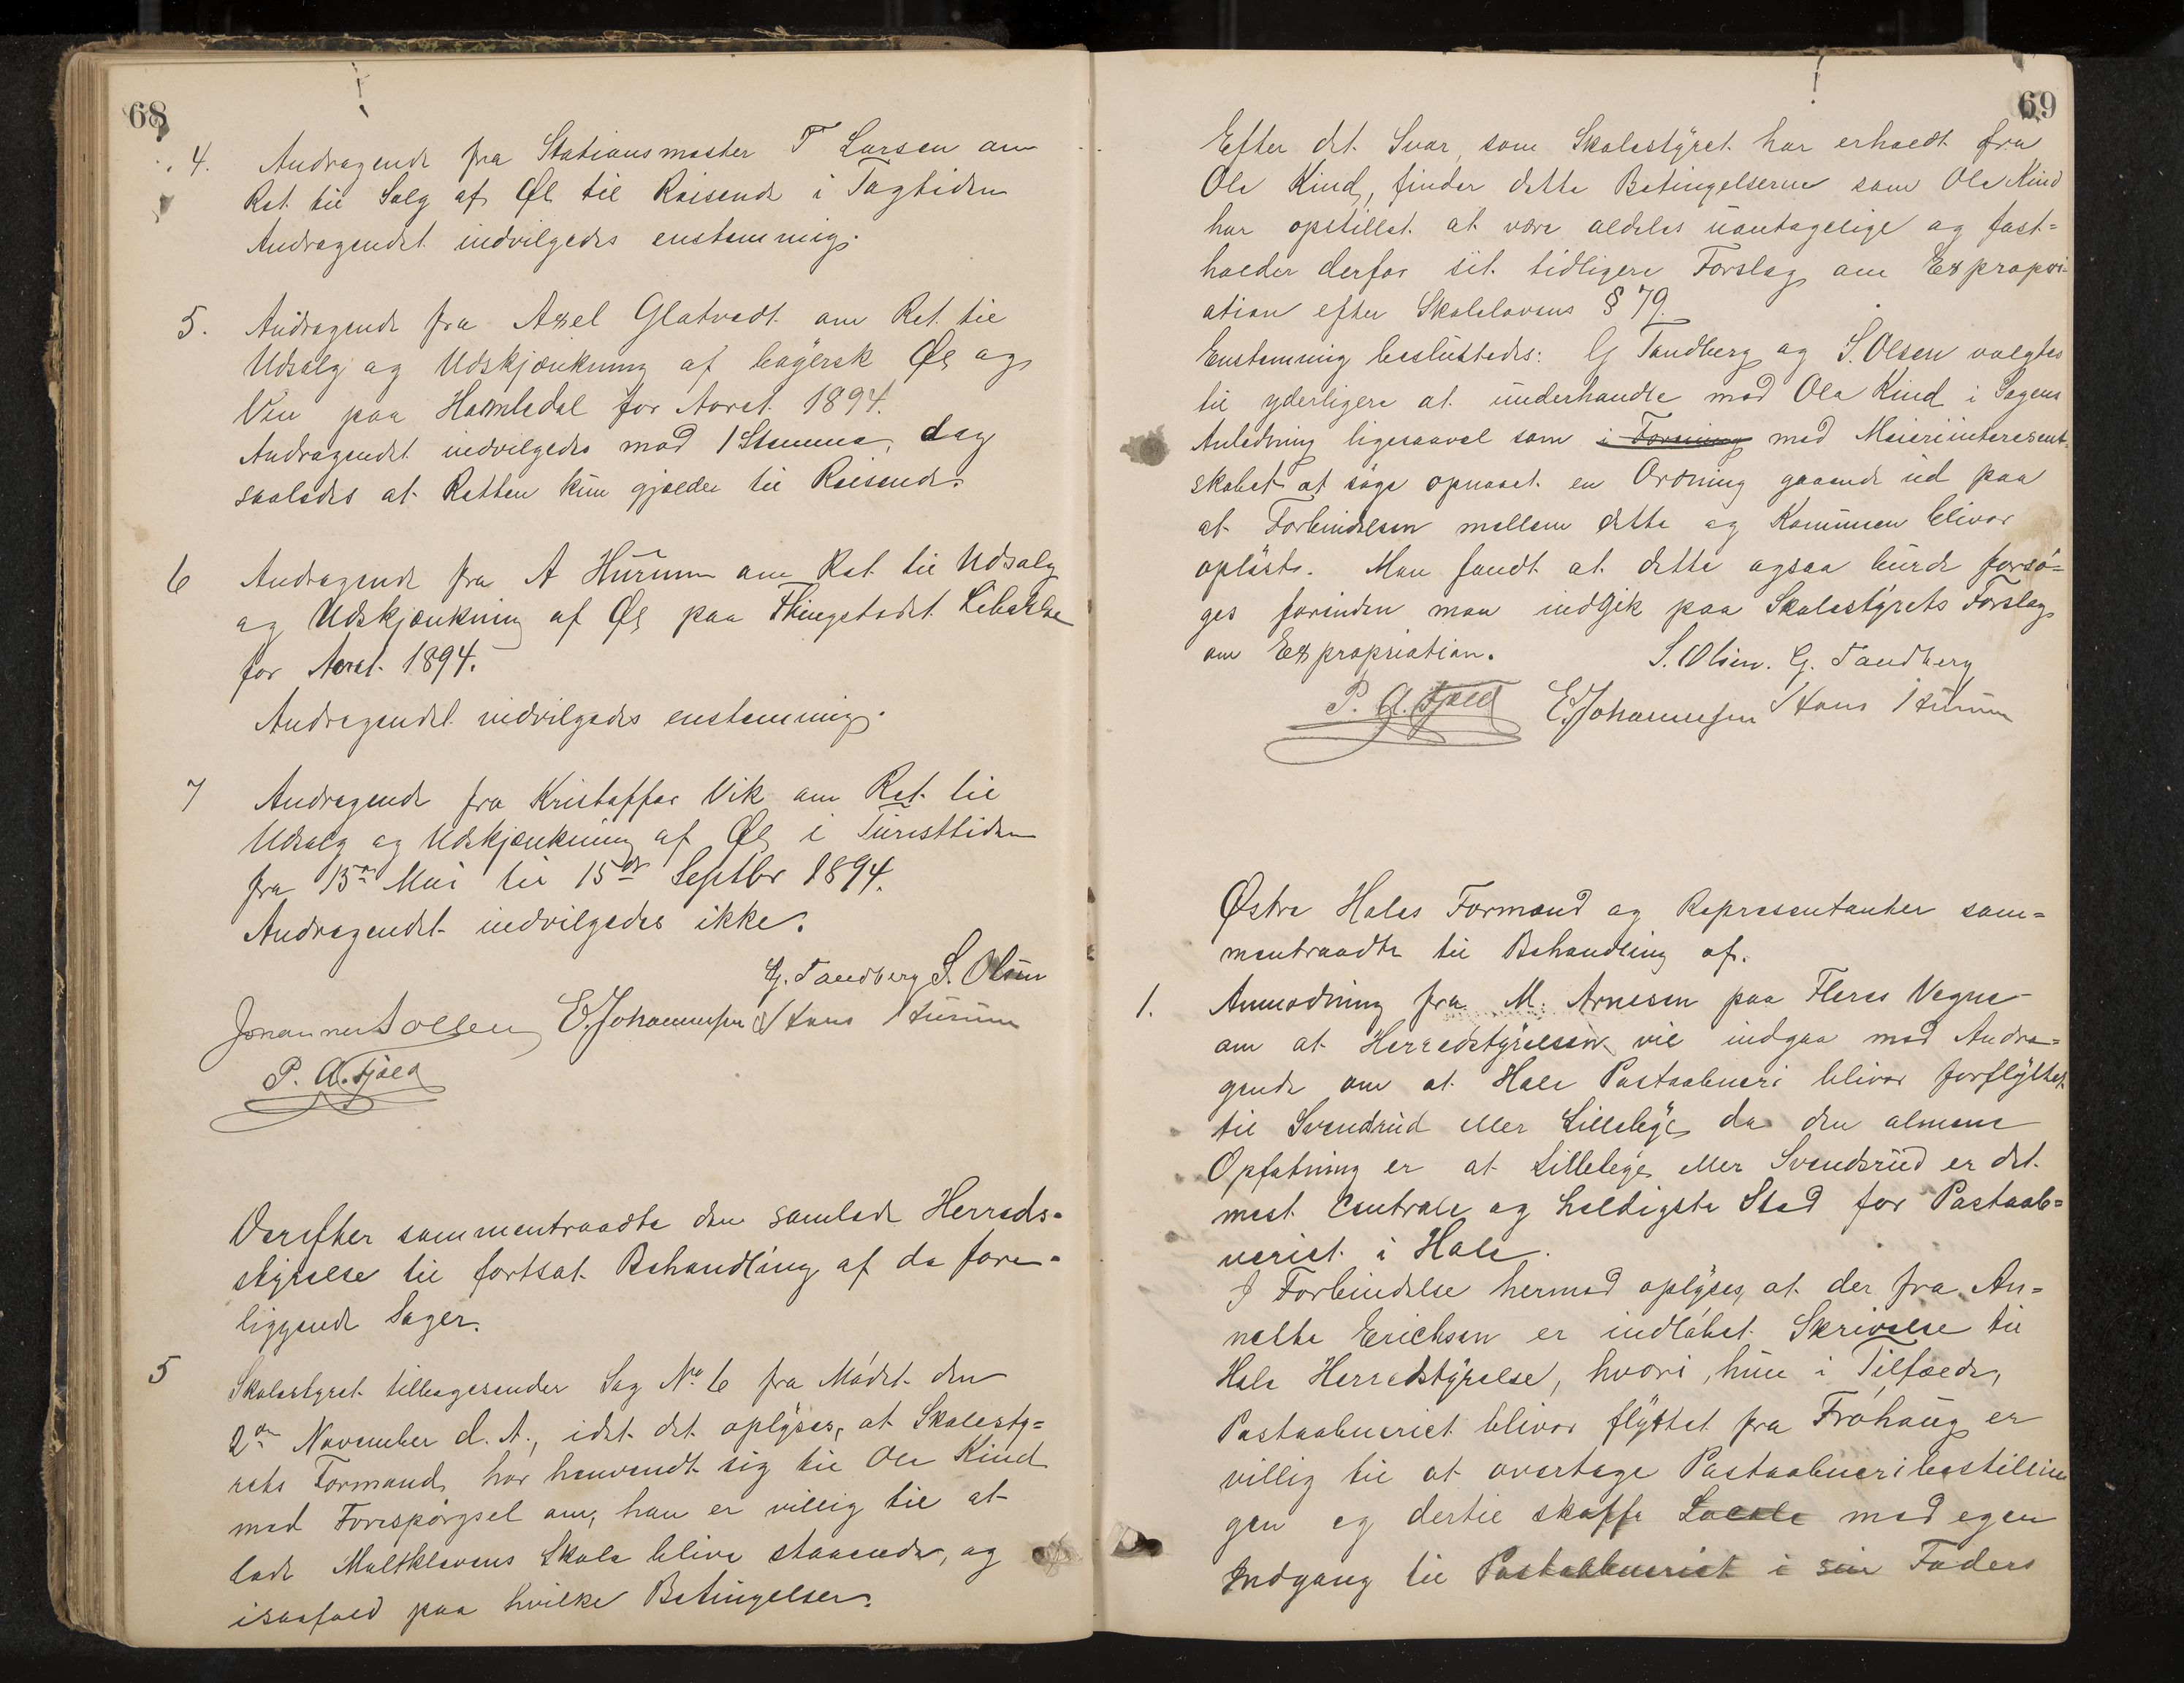 68
4. Andragende fra Stationsmester T Larsen om
Ret til Salg af Øl til Reisende i Togtiden
Andragendet indvilgedes enstemmig.
5. Andragende fra Axel Glatvedt om Ret til
Udsalg og Udskjænkning af bayersk Øl og
Vin paa Hamledal for Aaret 1894.
Andragendet indvilgedes mod 1 Stemme, dog
saaledes at Retten kun gjælder til Reisende.
6 Andragende fra A Hurum om Ret til Udsalg
og Udskjænkning af Øl paa Thingstedet Libakke
for Aaret 1894.
Andragendet indvilgedes enstemmig.
7 Andragende fra Kristoffer Vik om Ret til
Udsalg og Udskjænkning af Øl i Turisttiden
fra 15de Mai til 15de Septbr 1894.
Andragendet indvilgedes ikke.
G. Tandberg S. Olsen
Johannes Sollen E. Johannessen Hans Hurum
P. A. Fjeld
Derefter sammentraadte den samlede Herreds-
styrelse til fortsat Behandling af de fore-
liggende Sager.
5 Skolestyret tilbagesender Sag No 6 fra Mødet den
2den November d. A., idet det oplyses, at Skolesty=
rets Formand har henvendt sig til Ole Kind
med Forespørgsel om, han er villig til at
lade Maltklevens Skole blive staaende, og
isaafald paa hvilke Betingelser.
69
Efter det Svar, som Skolestyret har erholdt fra
Ole Kind, finder dette Betingelserne som Ole Kind
har opstillet at være aldeles uantagelige og fast=
holder derfor sit tidligere Forslag om Expropri-
ation efter Skolelovens § 79.
Enstemmig besluttedes: G Tandberg og S. Olsen valgtes
til yderligere at underhandle med Ole Kind i Sagens
Anledning ligesaavel som i Forening med Meieriinteressent
skabet at søge opnaaet en Ordning gaaende ud paa
at Forbindelsen mellem dette og Kommunen bliver
opløste. Man fandt at dette ogsaa burde forsø=
ges forinden man indgik paa Skolestyrets Forslag
om Expropriation.
S. Olsen. G. Tandberg
P. A. Fjeld E. Johannessen Hans Hurum
Østre Holes Formænd og Repræsentanter sam=
mentraadte til Behandling af.
1. Anmodning fra M. Arnesen paa Fleres Vegne
om at Herredstyrelsen vil indgaa med Andra=
gende om at Hole Postaabneri bliver forflyttet
til Svendsrud eller Lillebye da den almene
Opfatning er at Lillebye eller Svendsrud er det
mest centrale og heldigste Sted for Postaab=
neriet i Hole.
I Forbindelse hermed oplyses, at der fra An=
nette Erichsen er indløbet Skrivelse til
Hole Herredstyrelse, hvori, hun i Tilfælde,
Postaabneriet bliver flyttet fra Frøhaug er
villig til at overtage Postaabneribestillin
gen og dertil skaffe Locale med egen
Indgang til Postaabneriet i sin Faders